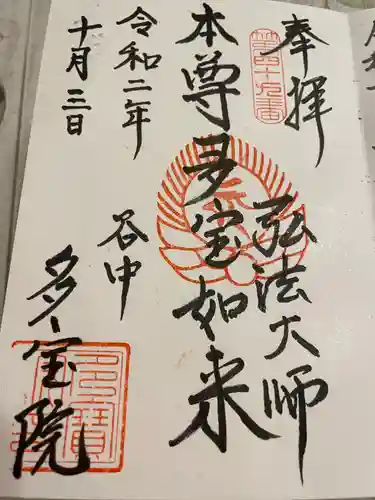 奉拝
第四十九番
弘法大師
本尊多宝如来
令和二年
十月三日
谷中
多宝院